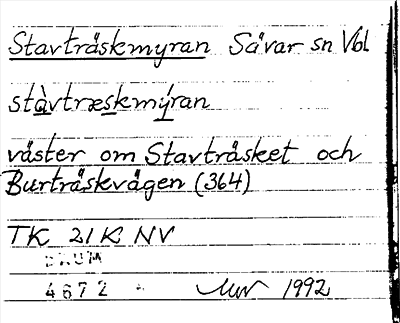 Stavträskmyran Sävar sn Vbl
stàvtræskmýran
väster om Stavträsket och
Burträskvägen (364)
TK 21K NV
DAUM
4672 1992